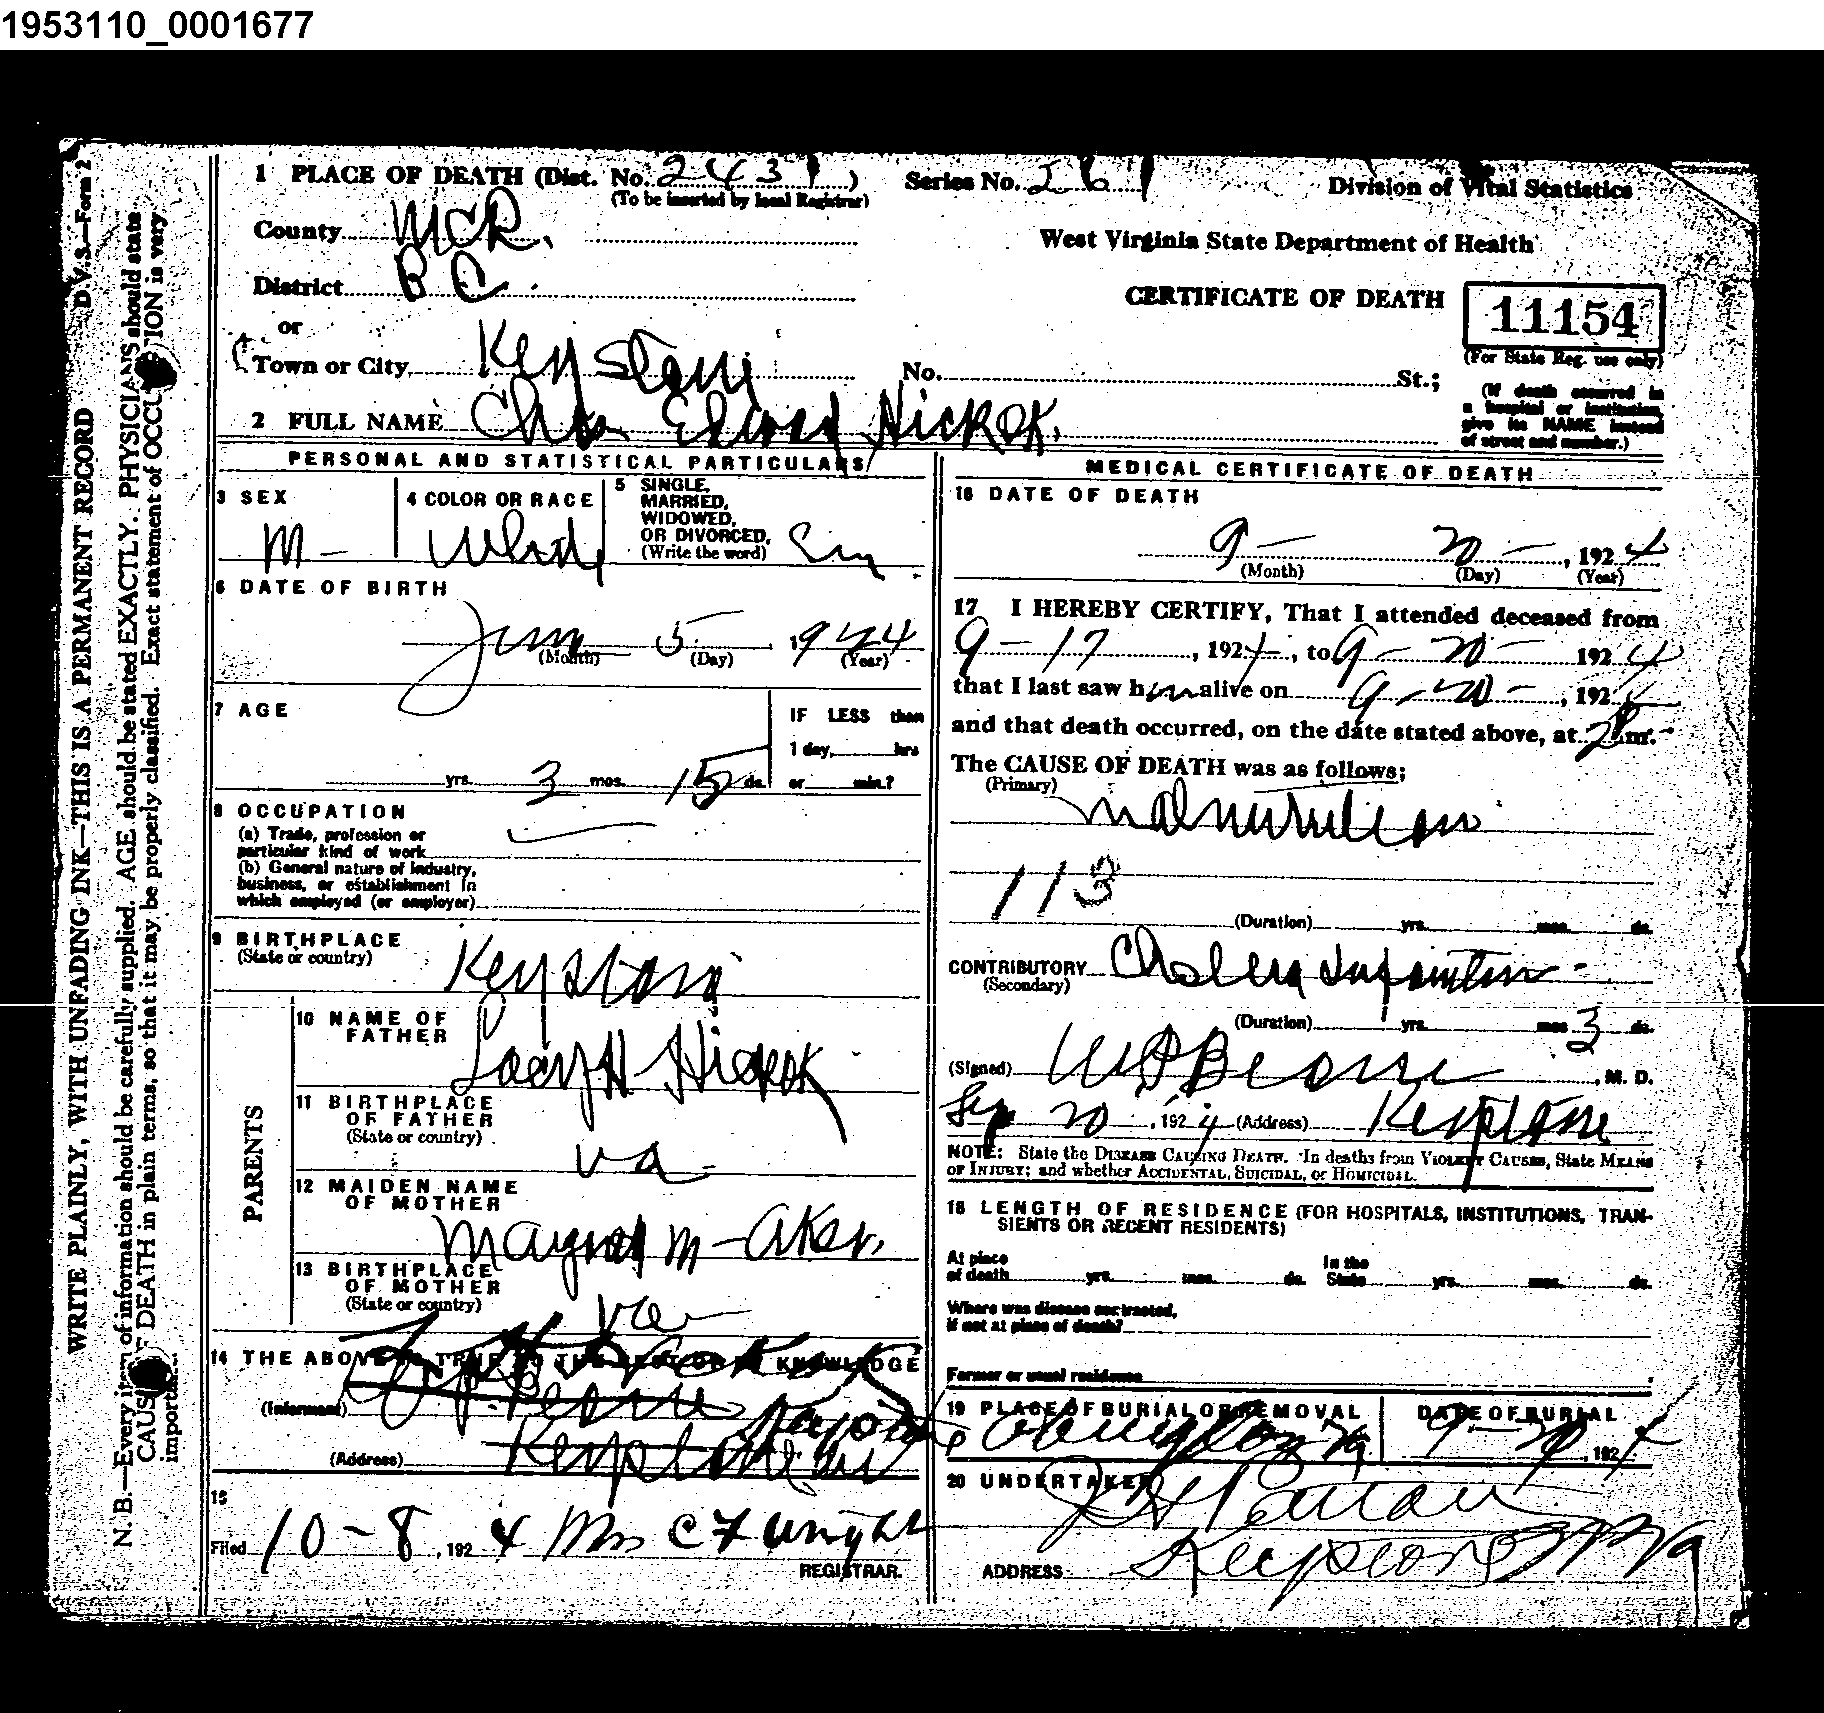 1953110_0001677
1 PLACE OF DEATH (Dist. No. 2431) Series No. 261 Division of Vital Statistics
(To be inserted by local Registrar)
County McD.
West Virginia State Department of Health
District B C.
CERTIFICATE OF DEATH 11154
or
(For State Reg. use only)
Town or City Keystone No. St.;
(If death occurred in
a hospital or institution,
give its NAME instead
of street and number.)
2 FULL NAME Chas Edward Hickok.
PERSONAL AND STATISTICAL PARTICULARS
3 SEX
M -
4 COLOR OR RACE
White
5 SINGLE,
MARRIED,
WIDOWED,
OR DIVORCED,
(Write the word) Sin
6 DATE OF BIRTH
June 5 1924
(Month) (Day) (Year)
7 AGE
IF LESS than
1 day, hrs
yrs. 3 mos. 15 ds. or min.?
8 OCCUPATION
(a) Trade, profession or
particular kind of work
(b) General nature of industry,
business, or establishment in
which employed (or employer)
9 BIRTHPLACE
(State or country)
Keystone
PARENTS
10 NAME OF
FATHER
H Hickok
11 BIRTHPLACE
OF FATHER
(State or country)
Va -
12 MAIDEN NAME
OF MOTHER
M - Aker.
13 BIRTHPLACE
OF MOTHER
(State or country)
Va
14 THE ABOVE IS TRUE TO THE BEST OF MY KNOWLEDGE
(Informant)
(Address) Keystone
15
Filed 10-8, 1924 Mrs C F Wright
REGISTRAR.
MEDICAL CERTIFICATE OF DEATH
16 DATE OF DEATH
9 - 20 -, 1924
(Month) (Day) (Year)
17 I HEREBY CERTIFY, That I attended deceased from
9 - 17, 1924, to 9 - 20 - 1924
that I last saw him alive on 9 - 20 -, 1924
and that death occurred, on the date stated above, at 2 P m.
The CAUSE OF DEATH was as follows;
(Primary)
Malnutrition
113
(Duration) yrs. mos. ds.
CONTRIBUTORY Cholera Infantum -
(Secondary)
(Duration) yrs. mos 3 ds.
(Signed) , M. D.
Sep 20, 1924 (Address) Keystone
NOTE: State the DISEASE CAUSING DEATH. In deaths from VIOLENT CAUSES, State MEANS
OF INJURY; and whether ACCIDENTAL, SUICIDAL, or HOMICIDAL.
18 LENGTH OF RESIDENCE (FOR HOSPITALS, INSTITUTIONS, TRAN-
SIENTS OR RECENT RESIDENTS)
At place In the
of death yrs. mos. ds. State yrs. mos. ds.
Where was disease contracted,
if not at place of death?
Former or usual residence
19 PLACE OF BURIAL OR REMOVAL DATE OF BURIAL
Abingdon Va 9-20, 1924
20 UNDERTAKER
ADDRESS Keystone W Va
D.V.S.—Form 2
WRITE PLAINLY, WITH UNFADING INK—THIS IS A PERMANENT RECORD
N. B.—Every item of information should be carefully supplied. AGE should be stated EXACTLY. PHYSICIANS should state
CAUSE OF DEATH in plain terms, so that it may be properly classified. Exact statement of OCCUPATION is very
important.